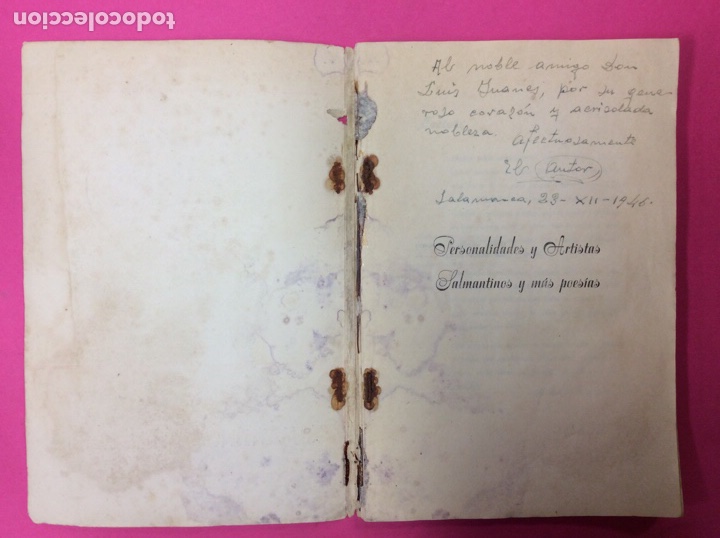 todocoleccion
Al noble amigo Don
Luis Juanes, por su gene-
roso corazón y acrisolada
nobleza.
Afectuosamente
El Autor
Salamanca, 23-XII-1946.
Personalidades y Artistas
Salmantinos y más poesías